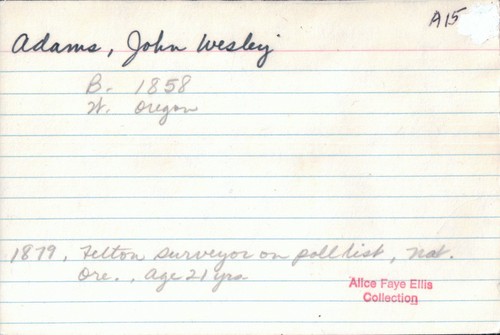 A15
Adams, John Wesley
B. 1858
N. Oregon
1879, Felton surveyor on poll list, nat.
Ore., age 21 yrs
Alice Faye Ellis
Collection